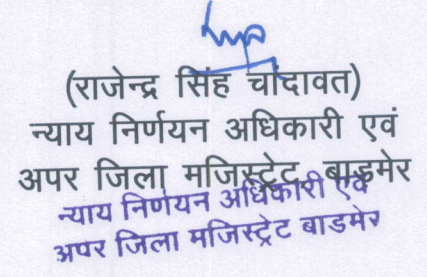 (राजेन्द्र सिंह चांदावत)
न्याय निर्णयन अधिकारी एवं
अपर जिला मजिस्ट्रेट, बाड़मेर
न्याय निर्णयन अधिकारी एवं
अपर जिला मजिस्ट्रेट बाडमेर